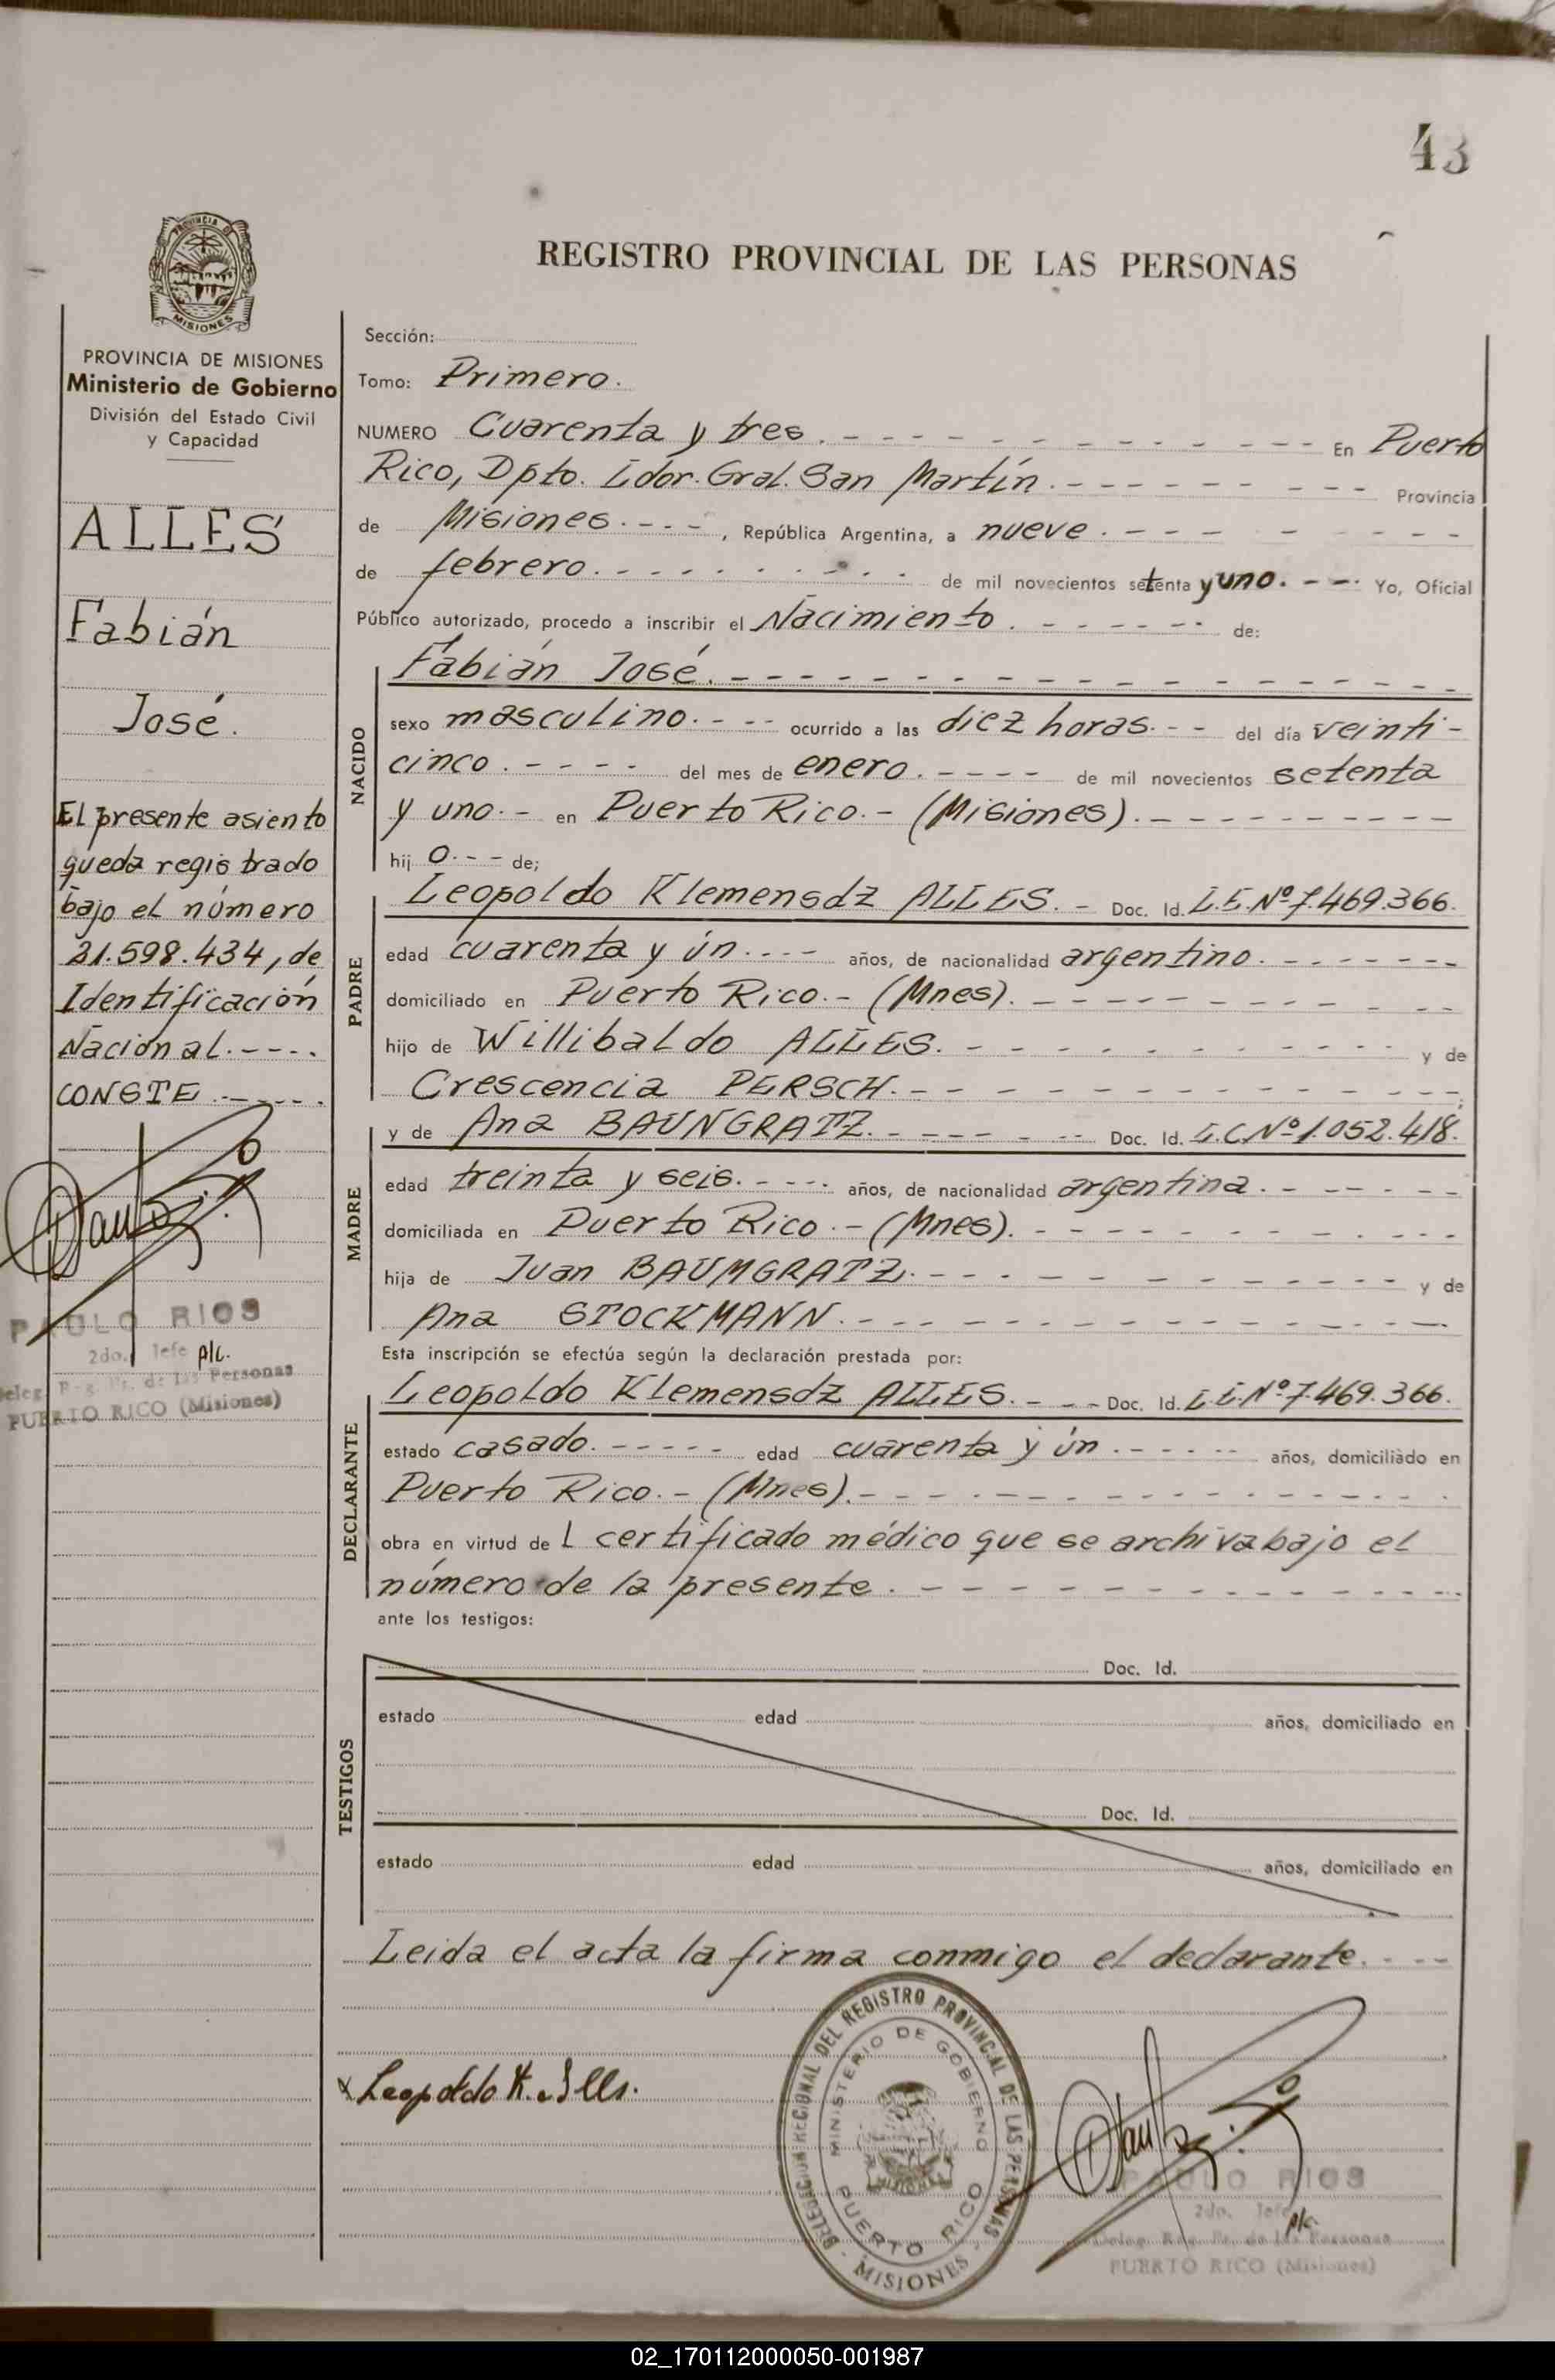 43
REGISTRO PROVINCIAL DE LAS PERSONAS
PROVINCIA DE MISIONES
Ministerio de Gobierno
División del Estado Civil
y Capacidad
ALLES
Fabián
José.
El presente asiento
queda registrado
bajo el número
21.598.434, de
Identificación
Nacional.----.
CONSTE.----.
PAULO RIOS
2do. Jefe p/c.
Deleg. Reg. Pr. de las Personas
PUERTO RICO (Misiones)
Sección:
Tomo: Primero.
NUMERO Cuarenta y tres. En Puerto
Rico, Dpto. Ldor. Gral. San Martín. Provincia
de Misiones. , República Argentina, a nueve.
de febrero. de mil novecientos setenta y uno. Yo, Oficial
Público autorizado, procedo a inscribir el Nacimiento. de:
NACIDO
Fabián José.
sexo masculino. ocurrido a las diez horas. del día veinti-
cinco. del mes de enero. de mil novecientos setenta
y uno.- en Puerto Rico.- (Misiones).
hij o.-- de;
PADRE
Leopoldo Klemensdz ALLES.- Doc. Id. L.E.Nº7.469.366.
edad cuarenta y ún. años, de nacionalidad argentino.
domiciliado en Puerto Rico.- (Mnes).
hijo de Willibaldo ALLES. y de
Crescencia PERSCH.
MADRE
y de Ana BAUNGRATZ. Doc. Id. L.C.Nº1.052.418.
edad treinta y seis. años, de nacionalidad argentina.
domiciliada en Puerto Rico.- (Mnes).
hija de Juan BAUMGRATZ. y de
Ana STOCKMANN.
Esta inscripción se efectúa según la declaración prestada por:
DECLARANTE
Leopoldo Klemensdz ALLES. Doc. Id. L.E.Nº7.469.366.
estado casado. edad cuarenta y ún. años, domiciliado en
Puerto Rico.- (Mnes).
obra en virtud de l certificado médico que se archiva bajo el
número de la presente.
ante los testigos:
TESTIGOS
Doc. Id.
estado edad años, domiciliado en
Doc. Id.
estado edad años, domiciliado en
Leida el acta la firma conmigo el declarante.
x Leopoldo K. Alles.
DELEGACION REGIONAL DEL REGISTRO PROVINCIAL DE LAS PERSONAS
MINISTERIO DE GOBIERNO
PUERTO RICO
- MISIONES -
PAULO RIOS
2do. Jefe p/c
Deleg. Reg. Pr. de las Personas
PUERTO RICO (Misiones)
02_170112000050-001987